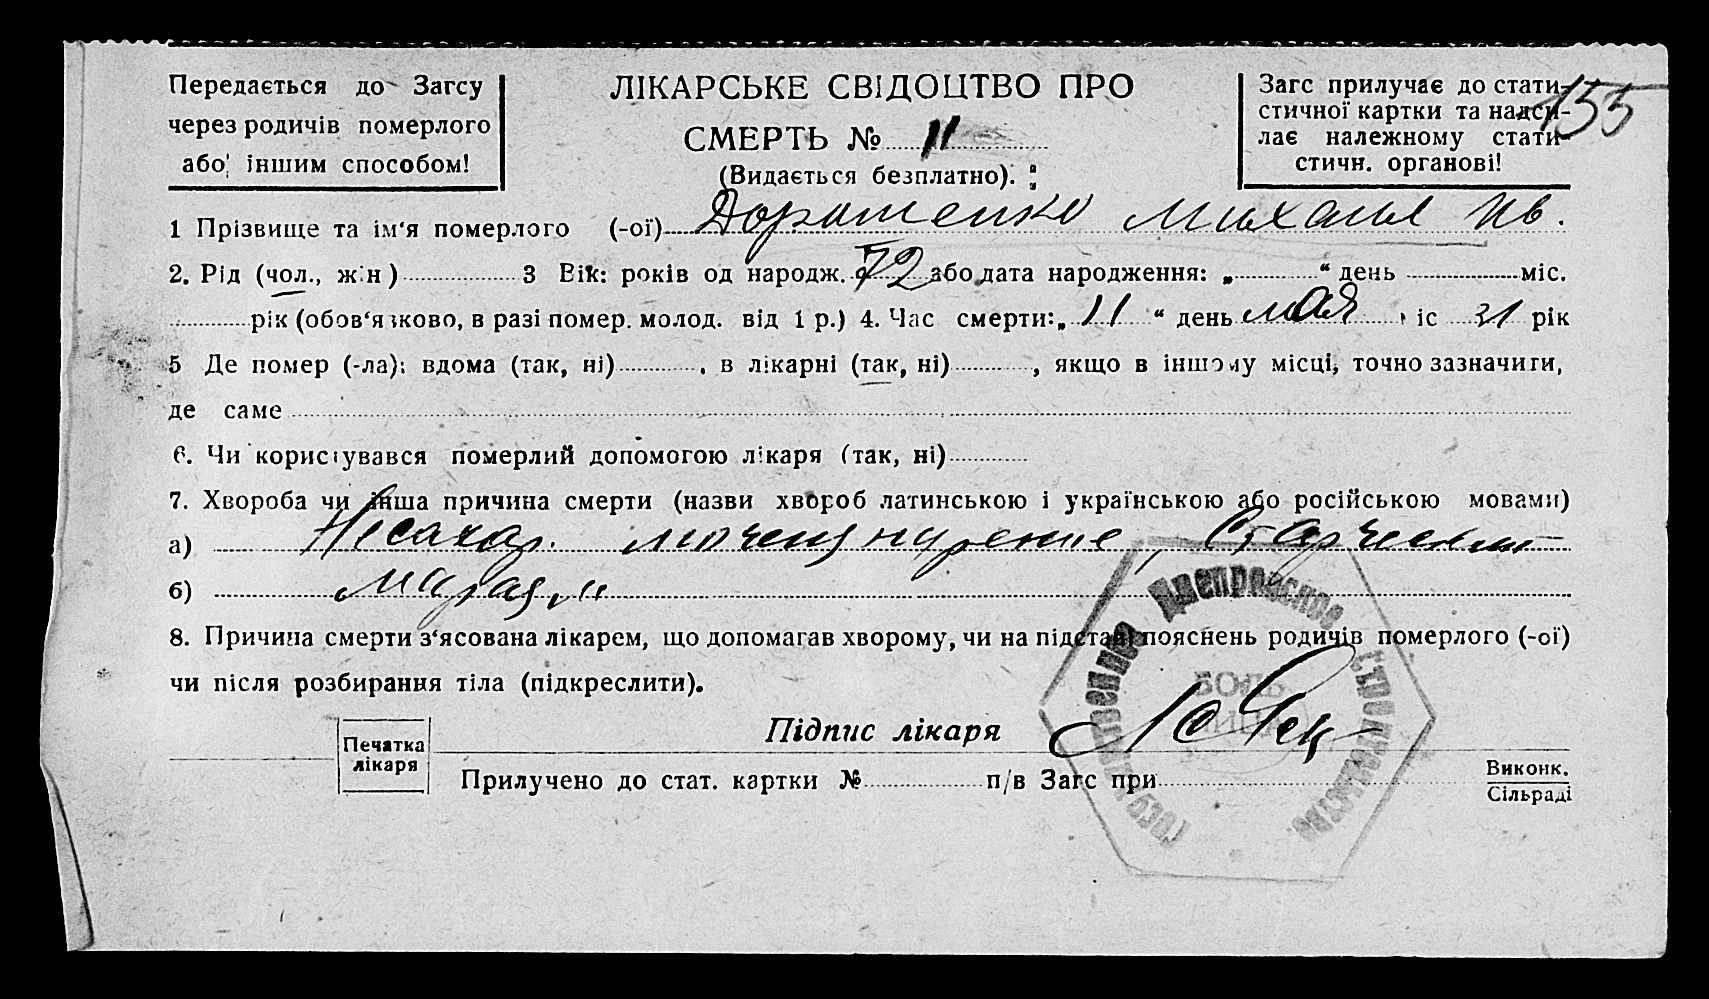 Передається до Загсу
через родичів померлого
або іншим способом!
ЛІКАРСЬКЕ СВІДОЦТВО ПРО
СМЕРТЬ № 11
(Видається безплатно).
Загс прилучає до стати-
стичної картки та надси-
лає належному стати-
стичн. органові!
155
1 Прізвище та ім'я померлого (-ої) Дорошенко Михаил Ив.
2. Рід (чол., жін) 3 Вік: років од народж. 72 або дата народження: „ “ день міс.
рік (обов'язково, в разі помер. молод. від 1 р.) 4. Час смерти: „ 11 “ день мая міс 31 рік
5 Де помер (-ла): вдома (так, ні) , в лікарні (так, ні) , якщо в іншому місці, точно зазначити,
де саме
6. Чи користувався померлий допомогою лікаря (так, ні)
7. Хвороба чи інша причина смерти (назви хвороб латинською і українською або російською мовами)
а) Несахар. мочеизнурение, Старческий
б) маразм
8. Причина смерти з'ясована лікарем, що допомагав хворому, чи на підставі пояснень родичів померлого (-ої)
чи після розбирання тіла (підкреслити).
Підпис лікаря
Печатка
лікаря
Прилучено до стат. картки № п/в Загс при
Виконк.
Сільраді
Днепровское строительство